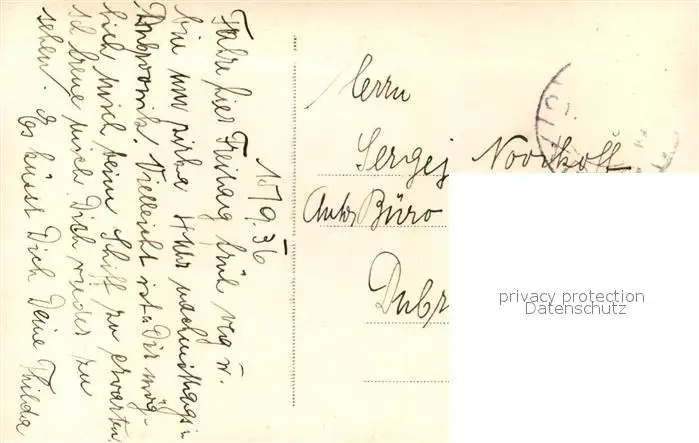 15/9.36
Fahre hier Freitag früh weg u.
bin um zirka 4 Uhr nachmittags i.
Dubrovnik. Vielleicht ist's Dir mög-
lich mich beim Schiff zu erwarten,
ich freue mich Dich wieder zu
sehen. Es küsst Dich Deine Thilda
Herrn
Sergej Novikoff
Büro
Dubr
privacy protection
Datenschutz